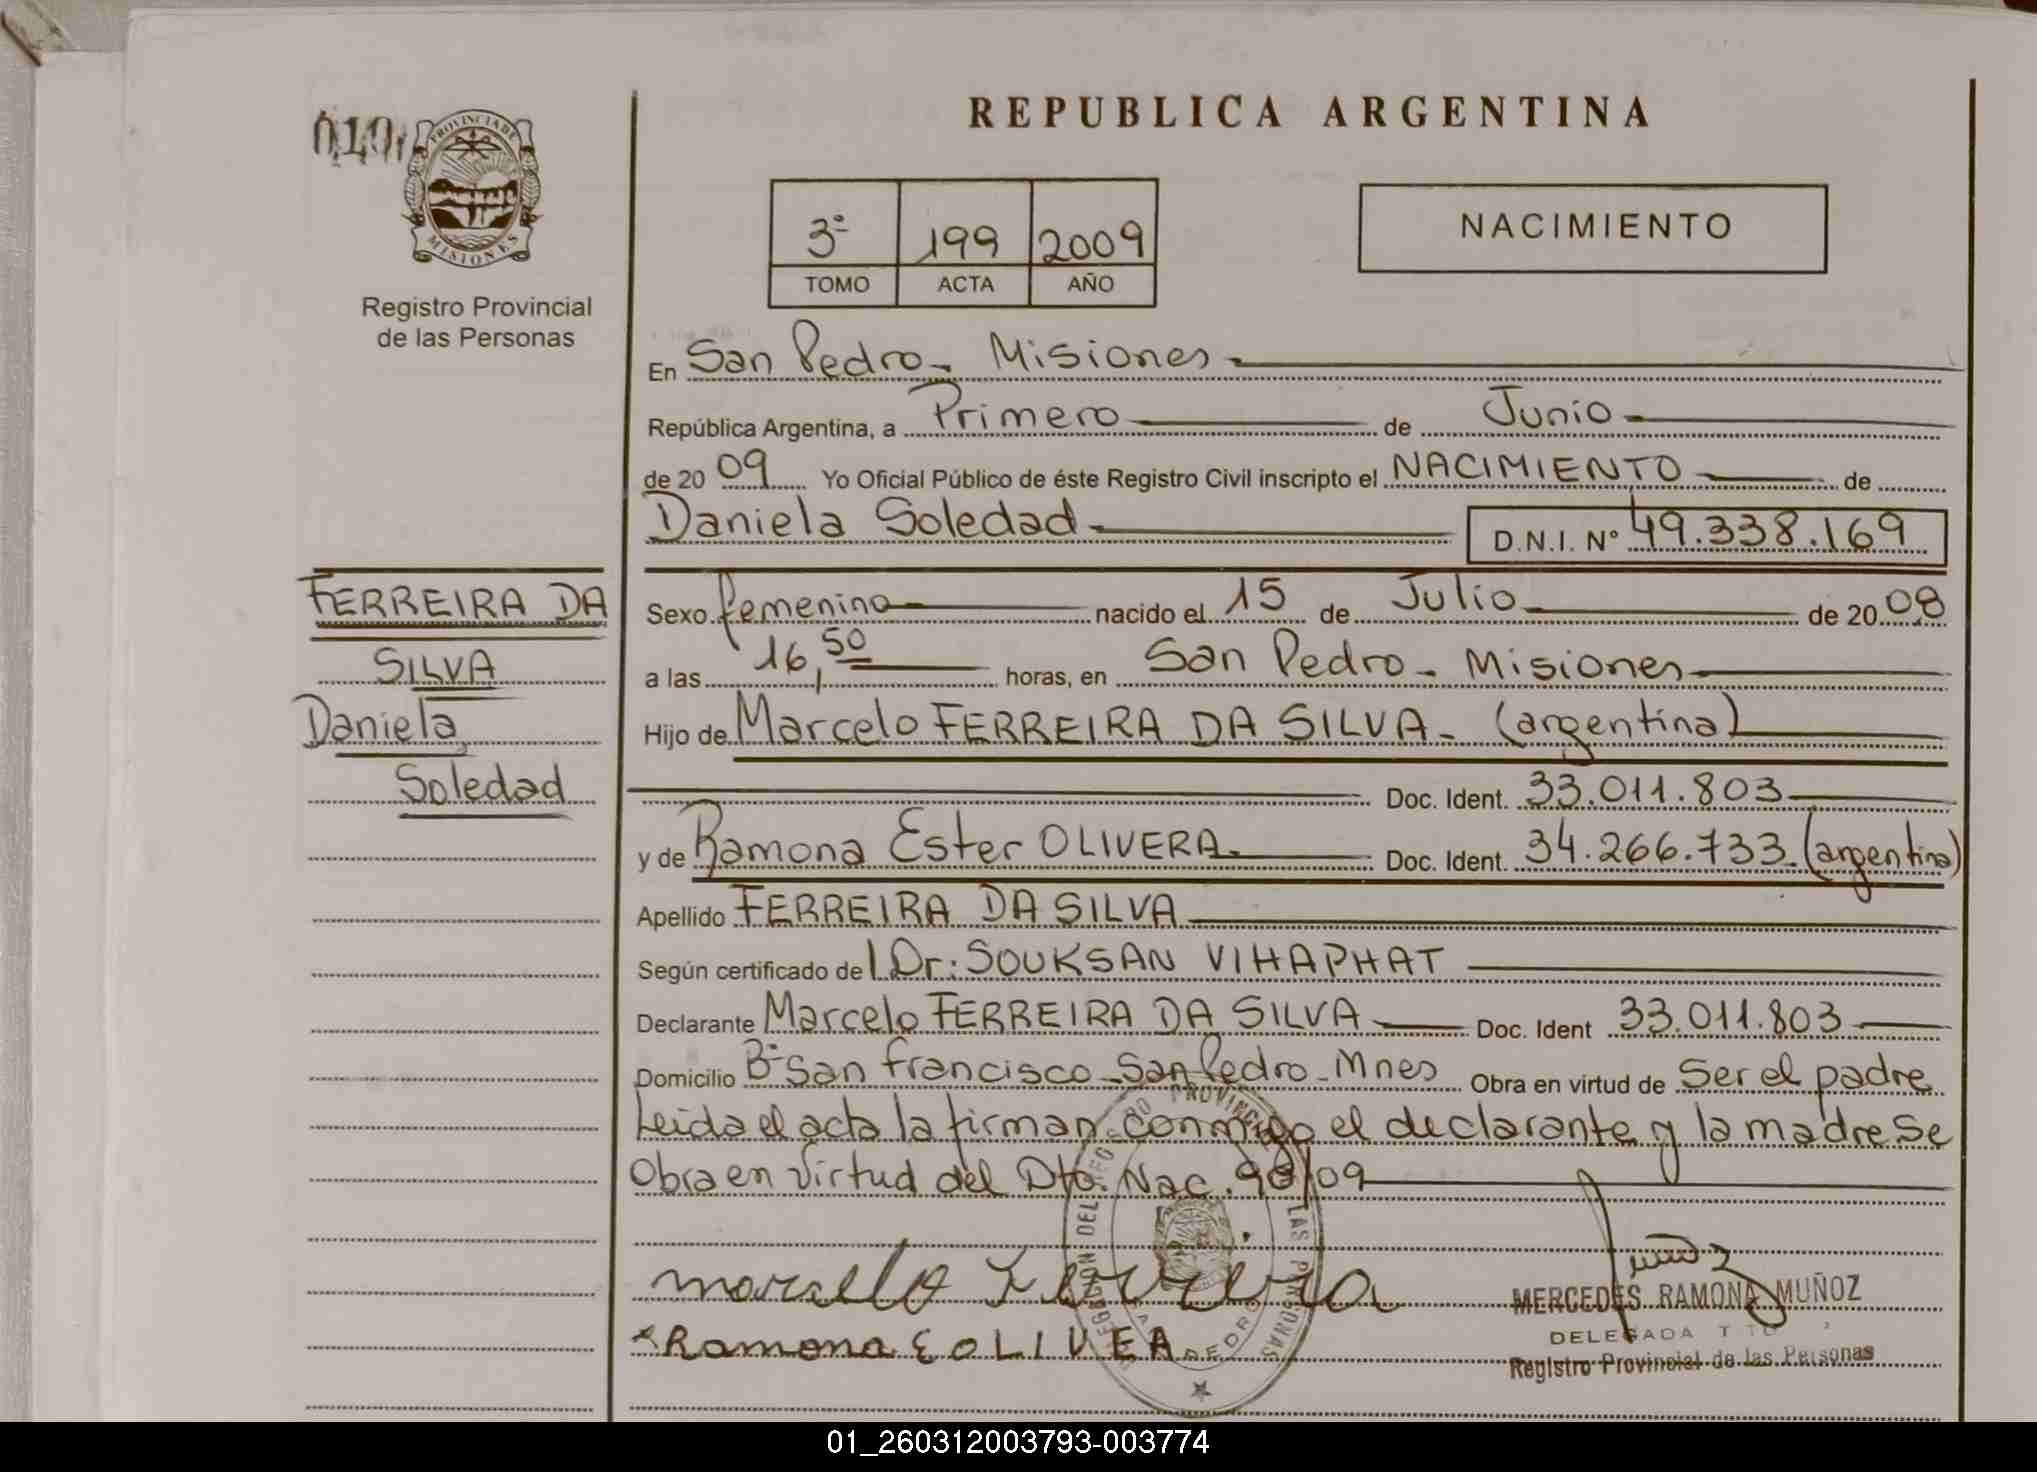 REPUBLICA ARGENTINA
PROVINCIA DE
MISIONES
Registro Provincial
de las Personas
3º 199 2009
TOMO ACTA AÑO
NACIMIENTO
En San Pedro - Misiones
República Argentina, a Primero de Junio
de 20 09 Yo Oficial Público de éste Registro Civil inscripto el NACIMIENTO de
Daniela Soledad D.N.I. Nº 49.338.169
FERREIRA DA
SILVA
Daniela
Soledad
Sexo femenino nacido el 15 de Julio de 20 08
a las 16,50 horas, en San Pedro - Misiones
Hijo de Marcelo FERREIRA DA SILVA - (argentina)
Doc. Ident. 33.011.803
y de Ramona Ester OLIVERA. Doc. Ident. 34.266.733 (argentina)
Apellido FERREIRA DA SILVA
Según certificado de Dr: SOUKSAN VIHAPHAT
Declarante Marcelo FERREIRA DA SILVA Doc. Ident 33.011.803
Domicilio Bº San Francisco - San Pedro - Mnes Obra en virtud de Ser el padre
Leída el acta la firman conmigo el declarante y la madre Se
Obra en virtud del Dto. Nac. 90/09
marcelo Ferreira
Ramona E OLIVEA
MERCEDES RAMONA MUÑOZ
DELEGADA
Registro Provincial de las Personas
01_260312003793-003774